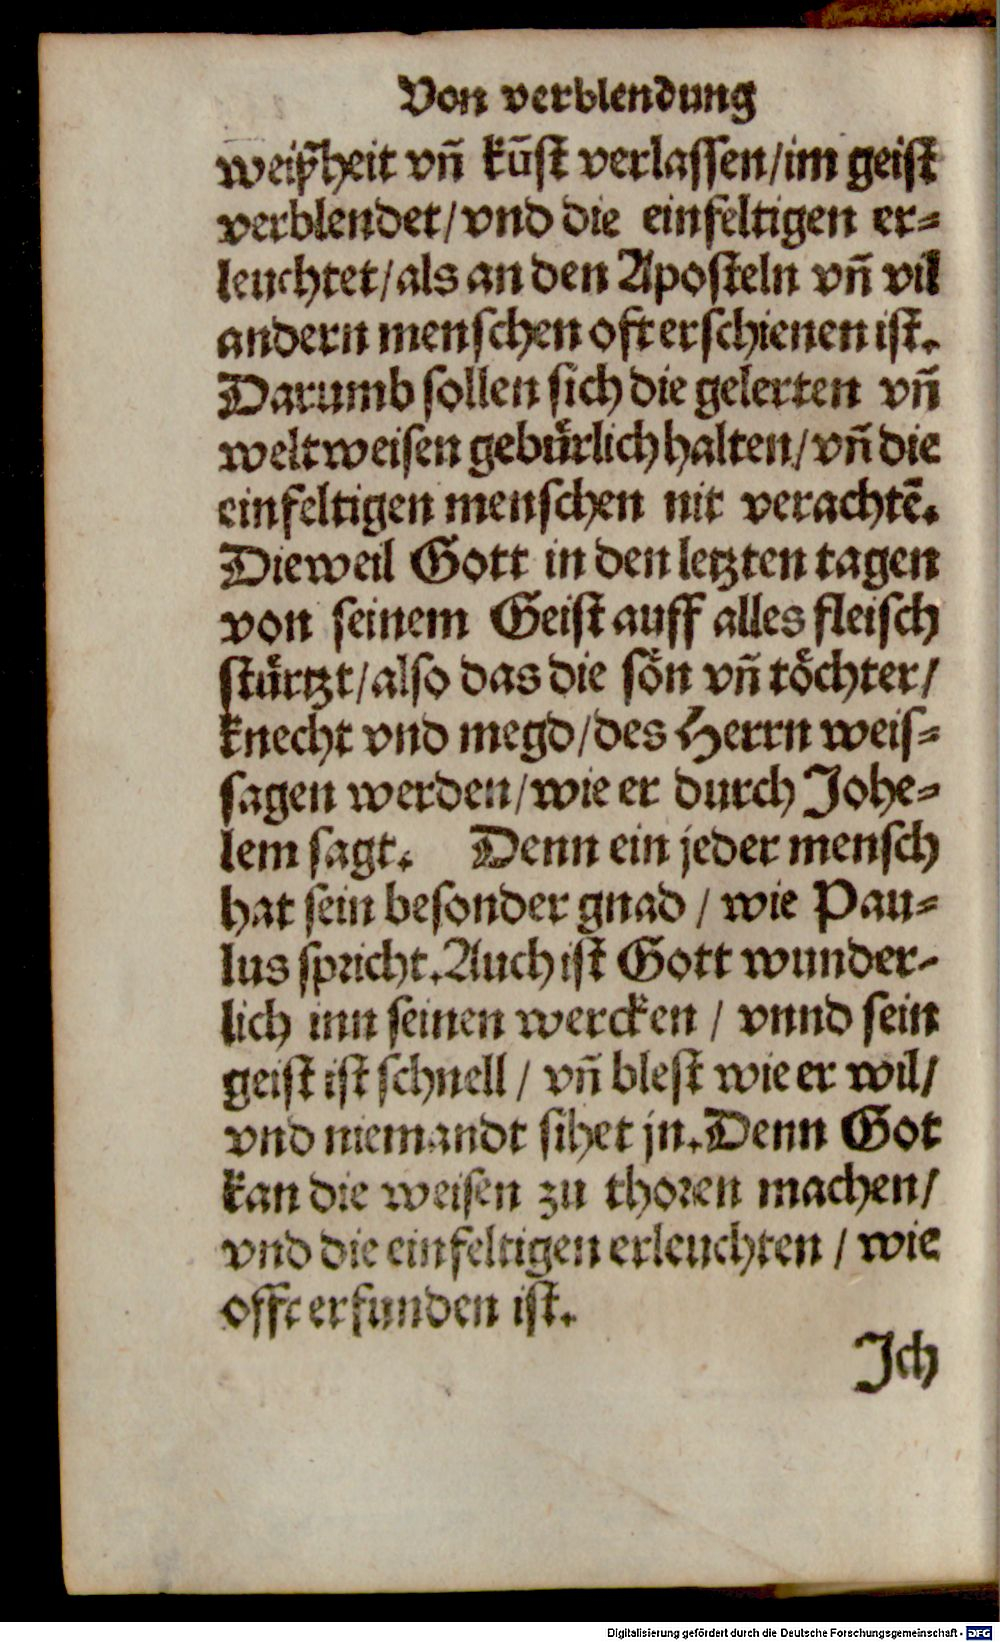 Von verblendung
weiſzheit vñ kūſt verlaſſen/im geiſt
verblendet/vnd die einfeltigen er⸗
leuchtet/als an den Apoſteln vñ vil
andern menſchen oft erſchienen iſt.
Darumb ſollen ſich die gelerten vñ
weltweiſen gebuͤrlich halten/vñ die
einfeltigen menſchen nit verachtē.
Dieweil Gott in den letzten tagen
von ſeinem Geiſt auff alles fleiſch
ſtuͤrtzt/alſo das die ſoͤn vñ toͤchter/
knecht vnd megd/des Herrn weiſ⸗
ſagen werden/wie er durch Johe⸗
lem ſagt. Denn ein jeder menſch
hat ſein beſonder gnad / wie Pau⸗
lus ſpricht. Auch iſt Gott wunder-
lich inn ſeinen wercken / vnnd ſein
geiſt iſt ſchnell / vñ bleſt wie er wil/
vnd niemandt ſihet jn. Denn Got
kan die weiſen zu thoren machen/
vnd die einfeltigen erleuchten / wie
offt erfunden iſt.
Ich
Digitalisierung gefördert durch die Deutsche Forschungsgemeinschaft - DFG